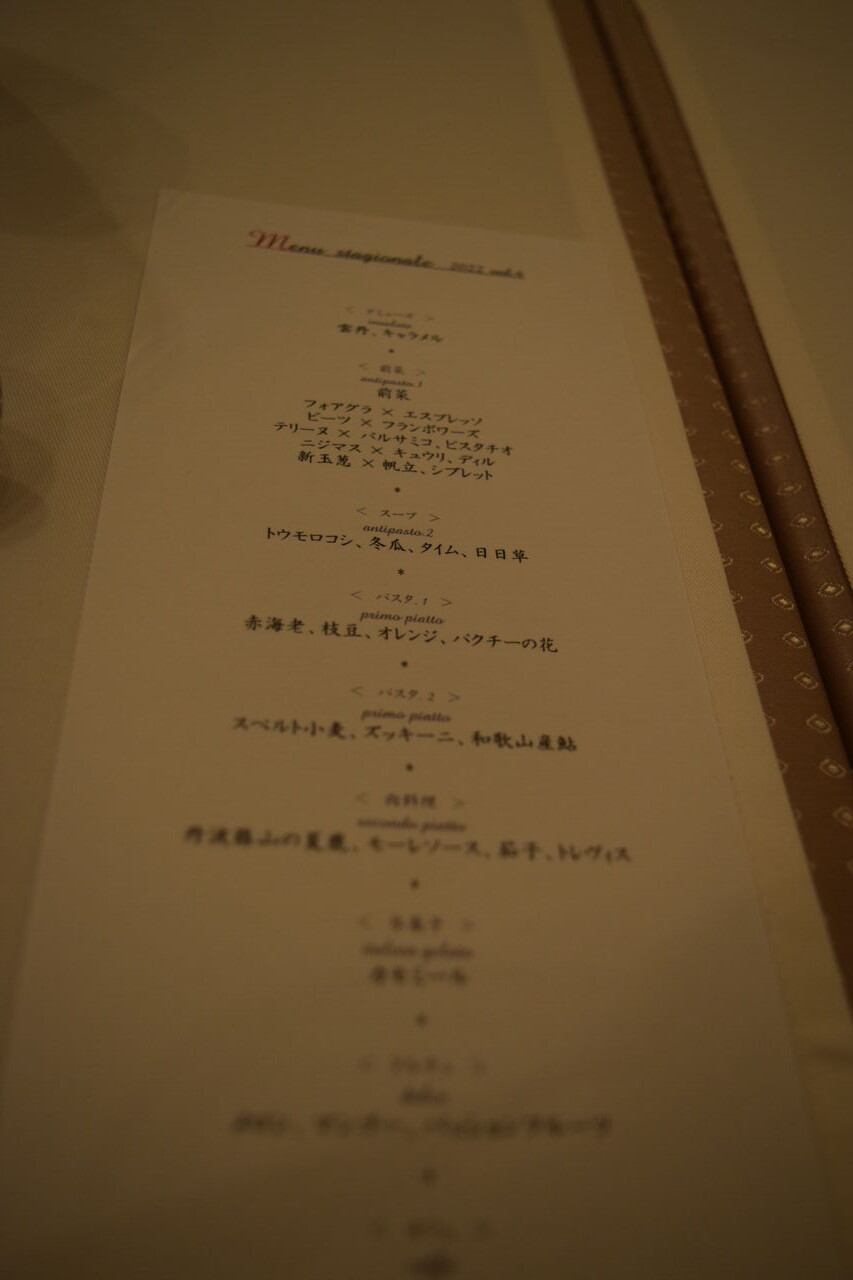 Menu stagionale 2022 vol.4
< アミューズ >
雲丹、キャラメル
*
< 前菜 >
antipasto.1
前菜
フォアグラ × エスプレッソ
ビーツ × フランボワーズ
テリーヌ × バルサミコ、ピスタチオ
ニジマス × キュウリ、ディル
新玉葱 × 帆立、シブレット
*
< スープ >
antipasto.2
トウモロコシ、冬瓜、タイム、日日草
*
< パスタ.1 >
primo piatto
赤海老、枝豆、オレンジ、パクチーの花
*
< パスタ.2 >
primo piatto
スペルト小麦、ズッキーニ、和歌山産鮎
*
< 肉料理 >
secondo piatto
丹波篠山の夏鹿、モーレソース、茄子、トレヴィス
*
< 氷菓子 >
italian gelato
*
dolce
マンゴー、パッションフルーツ
*